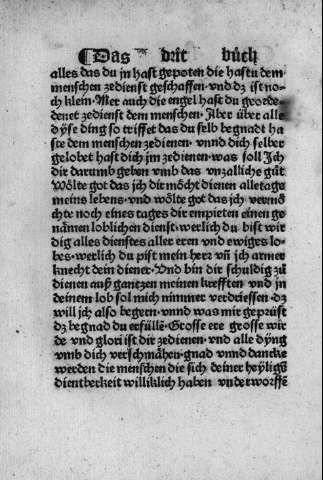 ¶ Das drit bůch
alles das du jn hast gepoten die hastu dem
menschen zedienst geschaffen·vnd dz ist no-
ch klein·Mer auch die engel hast du georde-
denet zedienst dem menschen·Aber über alle
dyse ding so triffet das du selb begnadt ha
ste dem menschen zedienen·vnnd dich selber
gelobet hast dich jm zedienen·was soll Jch
dir darumb geben vmb das vnzalliche gůt
Wölte got das jch dir möcht dienen alletage
meins lebens·vnd wölte got das jch vermö
chte noch eines tages dir empieten einen ge
nåmen loblichen dienst·werlich du bist wir
dig alles dienstes aller eren vnd ewiges lo-
bes·werlich du pist mein herz vñ jch armer
knecht dein diener·Vnd bin dir schuldig zů
dienen auß gantzen meinen krefften vnd jn
deinem lob sol mich nimmer verdriessen·dz
will jch also begern·vnnd was mir geprüst
dz begnad du erfüllē·Grosse ere grosse wir
de vnd glori ist dir zedienen·vnd alle dyng
vmb dich verschmåhen·gnad vnnd dancke
werden die menschen die sich deiner heyligs
dientberkeit williklich haben vnderworffē